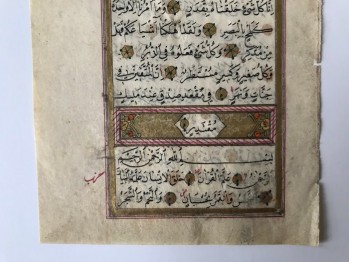 إِنَّا كُلَّ شَيْءٍ خَلَقْنَاهُ بِقَدَرٍ وَمَا أَمْرُنَا إِلَّا وَاحِدَةٌ
كَلَمْحٍ بِالْبَصَرِ وَلَقَدْ أَهْلَكْنَا أَشْيَاعَكُمْ فَهَلْ
مِنْ مُدَّكِرٍ وَكُلُّ شَيْءٍ فَعَلُوهُ فِي الزُّبُرِ
وَكُلُّ صَغِيرٍ وَكَبِيرٍ مُسْتَطَرٌ إِنَّ الْمُتَّقِينَ فِي
جَنَّاتٍ وَنَهَرٍ فِي مَقْعَدِ صِدْقٍ عِنْدَ مَلِيكٍ
مُقْتَدِرٍ
بِسْمِ اللَّهِ الرَّحْمَٰنِ الرَّحِيمِ
الرَّحْمَٰنُ عَلَّمَ الْقُرْآنَ خَلَقَ الْإِنْسَانَ عَلَّمَهُ الْبَيَانَ
الشَّمْسُ وَالْقَمَرُ بِحُسْبَانٍ وَالنَّجْمُ وَالشَّجَرُ